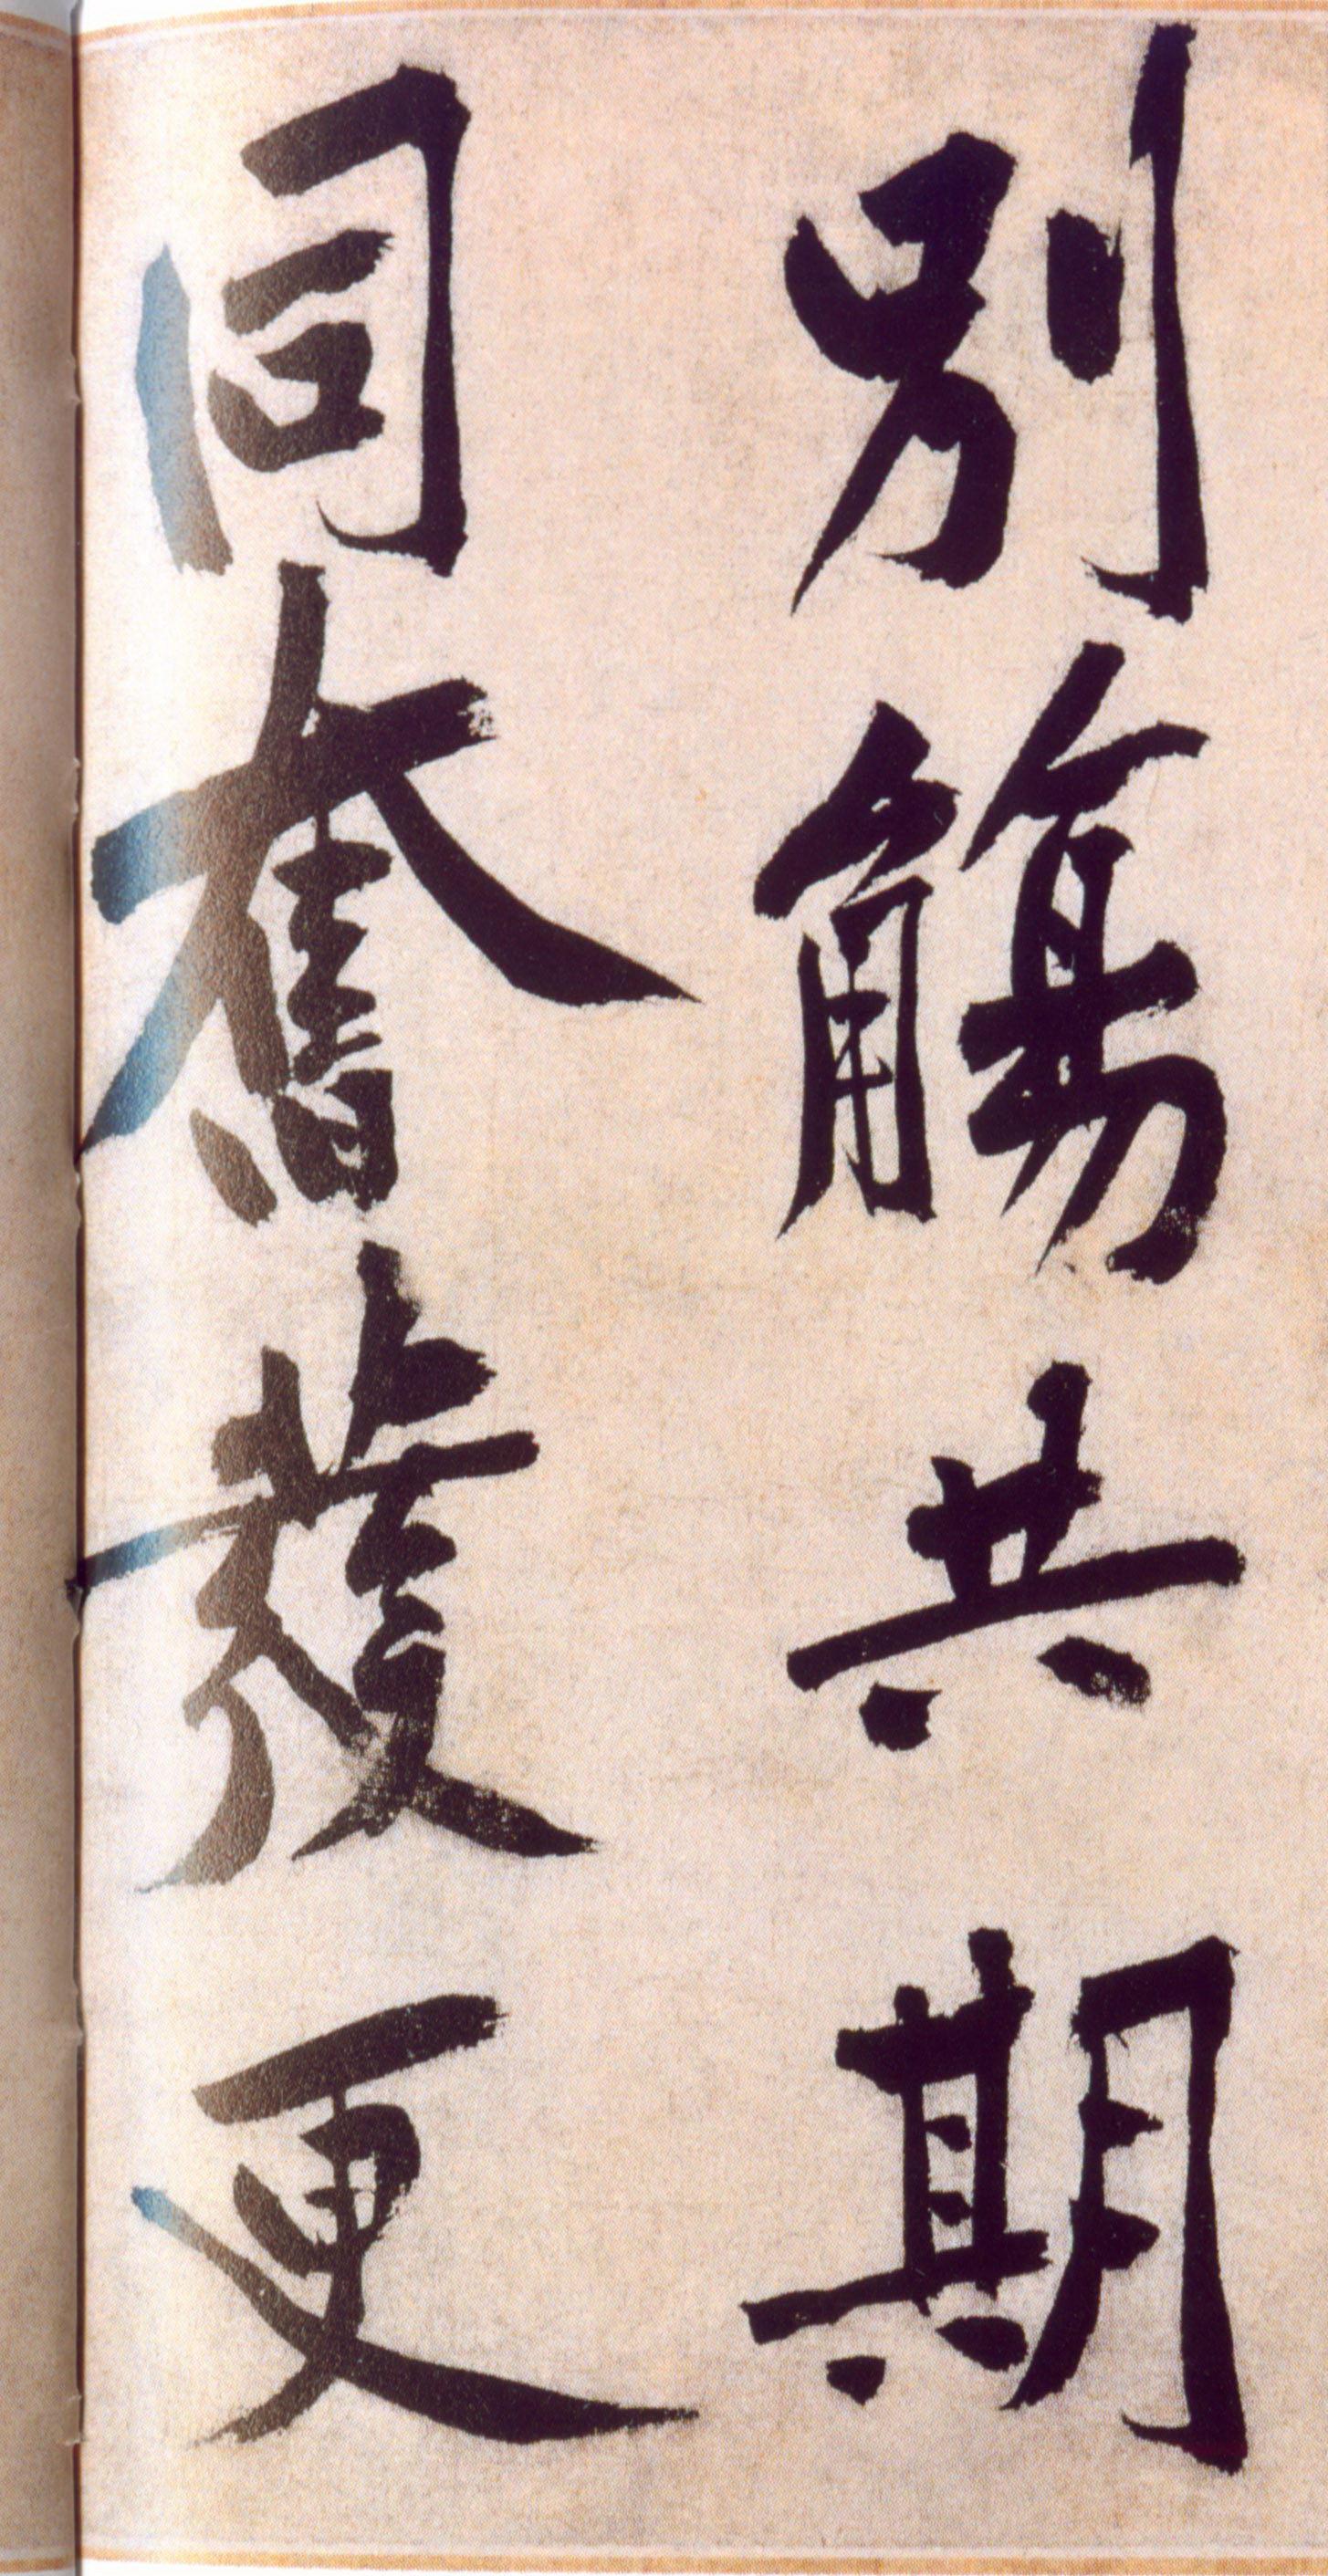 別觴共期
同奮發更